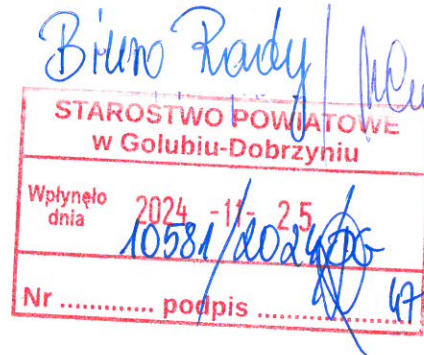 Biuro Rady/
STAROSTWO POWIATOWE
w Golubiu-Dobrzyniu
Wpłynęło dnia 2024 -11- 25
10581/2024
Nr ............ podpis ..................
47